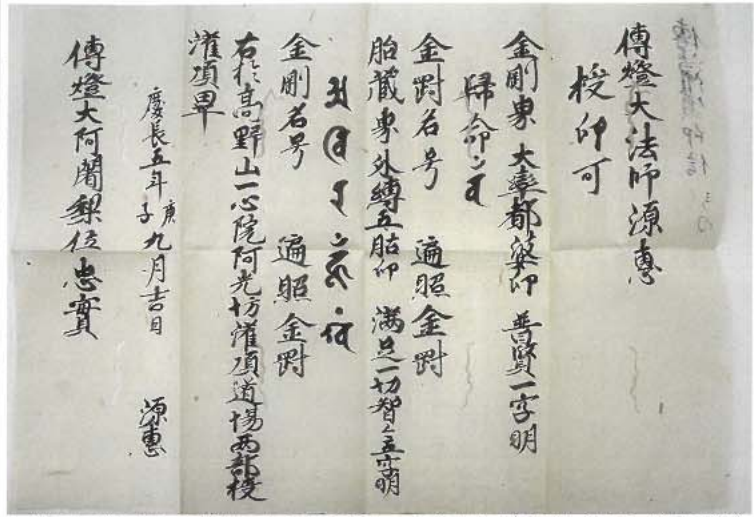 傳燈大法師源惠
授印可
金剛界 大率都婆印 普賢一字明
歸命
金剛名号 遍照金剛
胎蔵界外縛五股印 満足一切智々五字明
金剛名号 遍照金剛
右於高野山一心院阿光坊灌頂道場両部授
灌頂畢
慶長五年庚子九月吉日 源惠
傳燈大阿闍梨位忠實